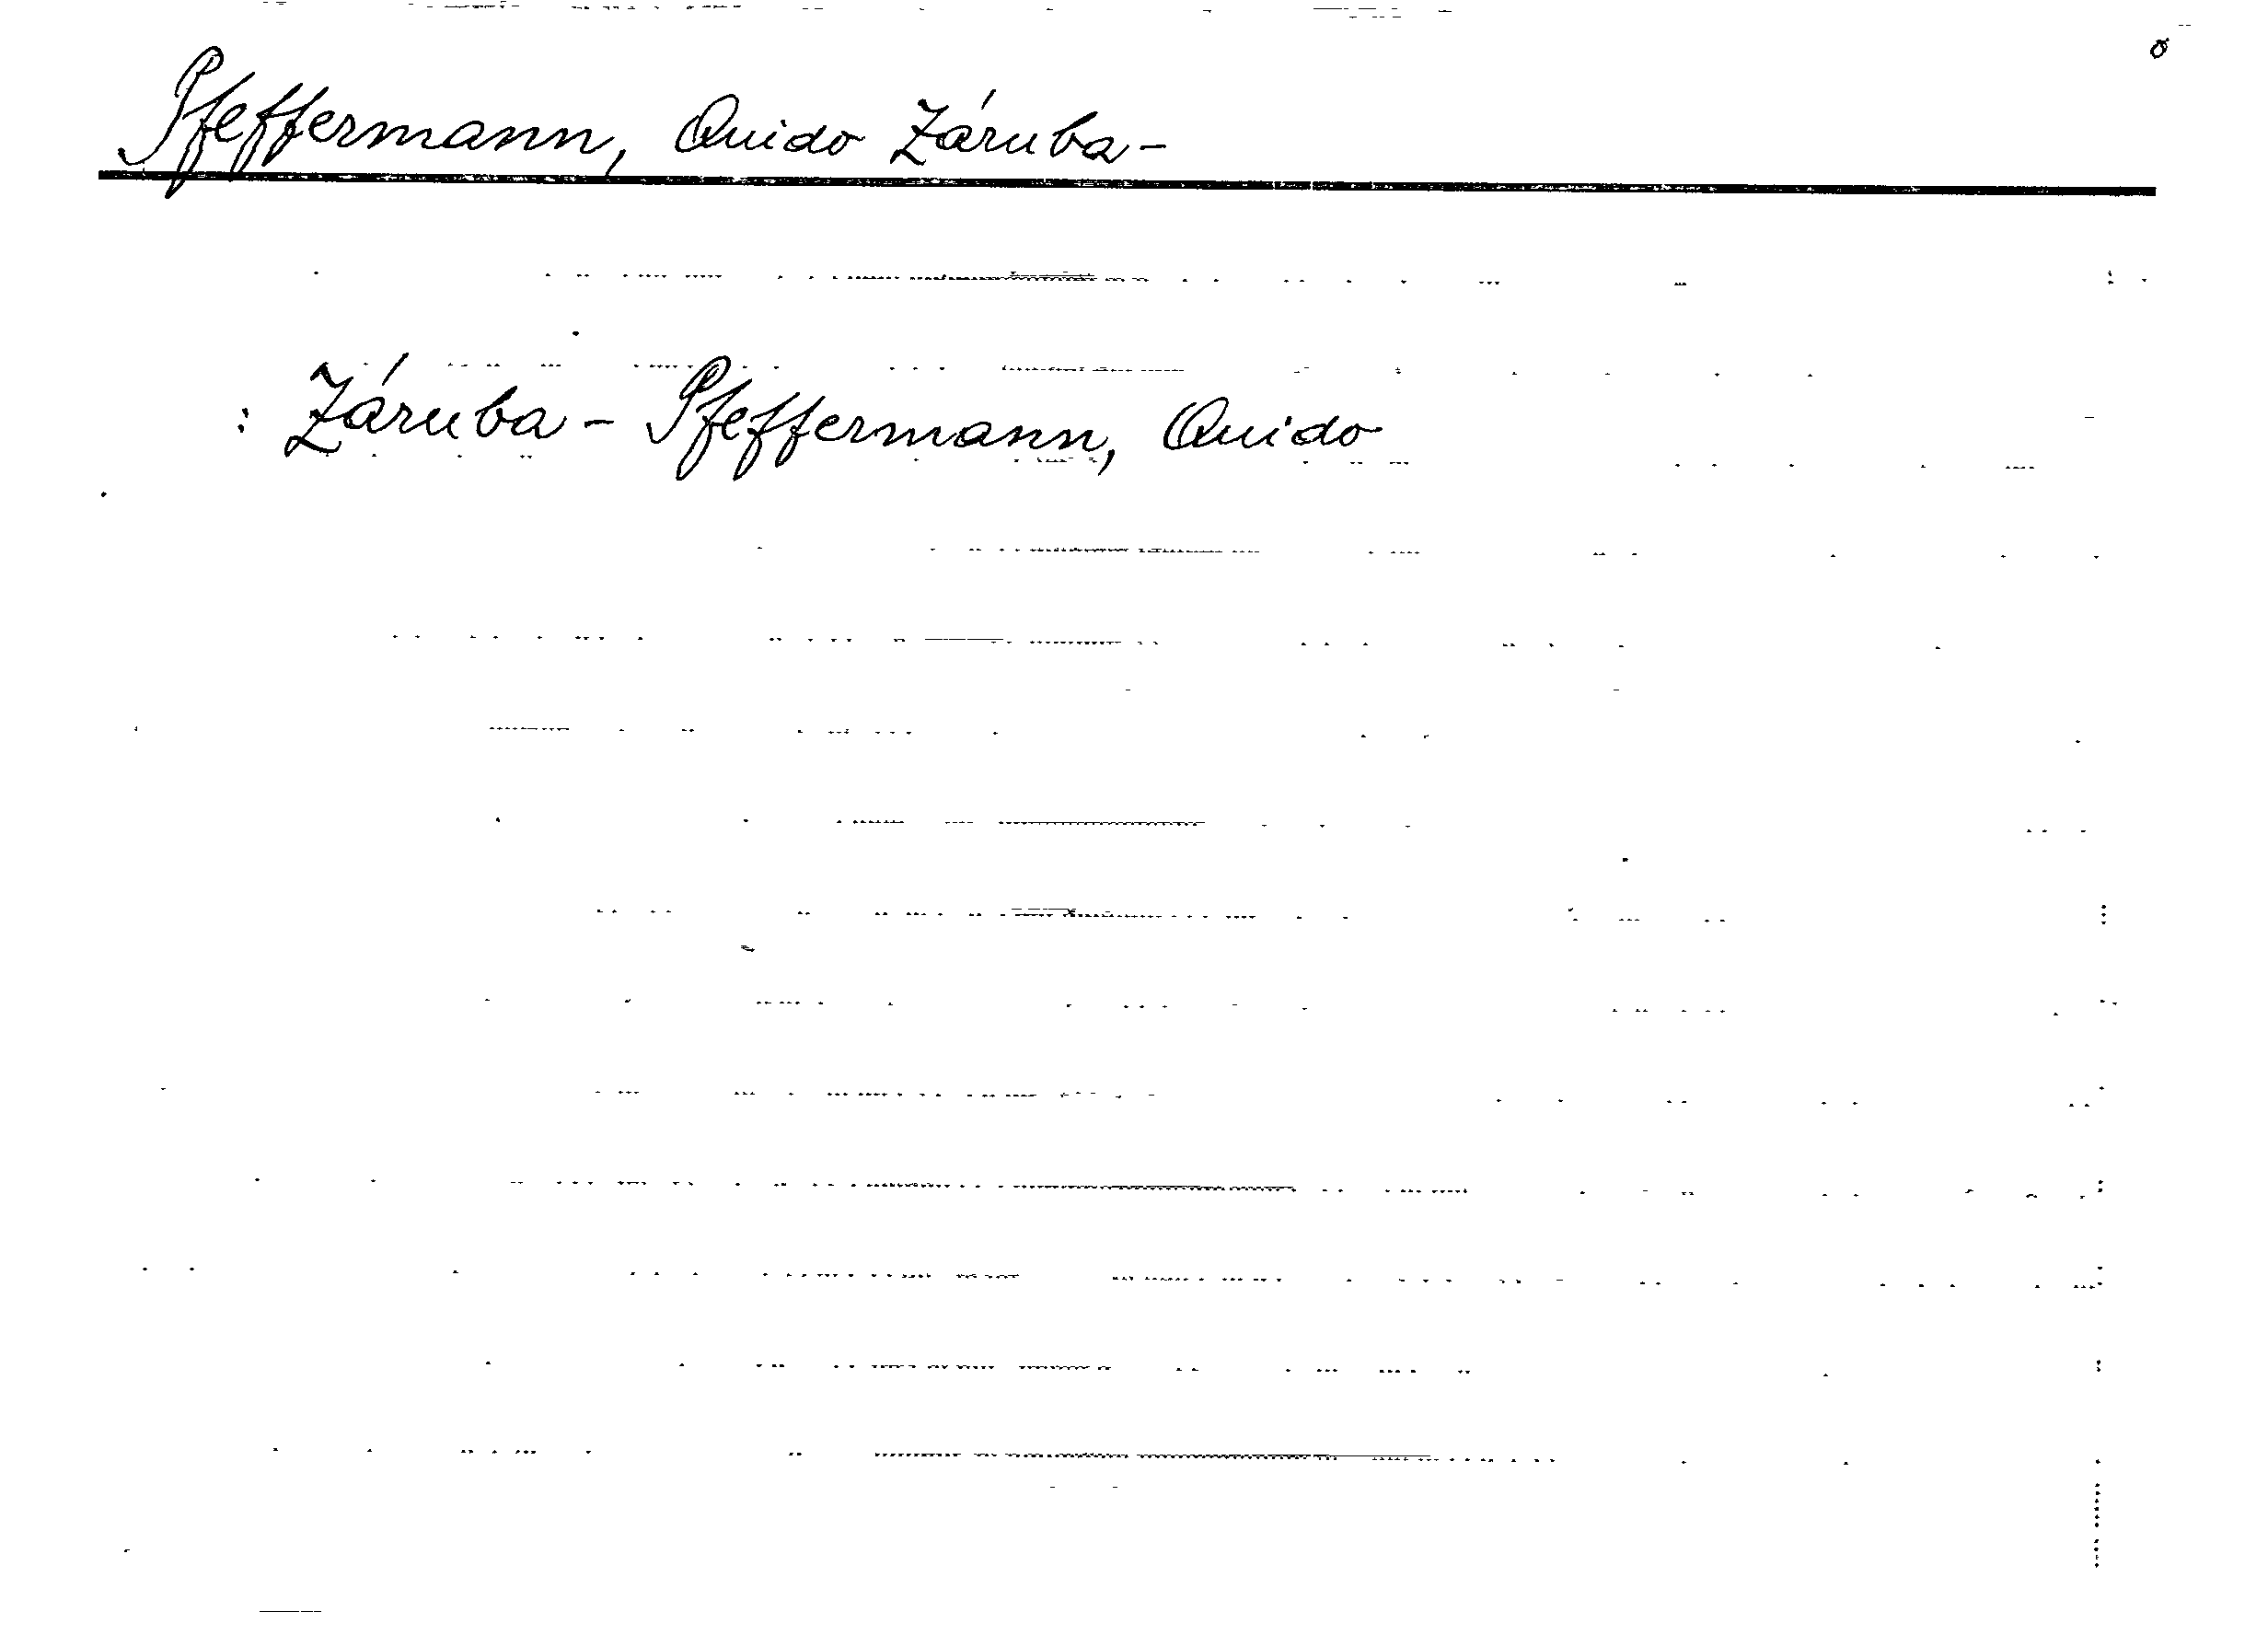 Pfeffermann, Quido Záruba-
: Záruba - Pfeffermann, Quido